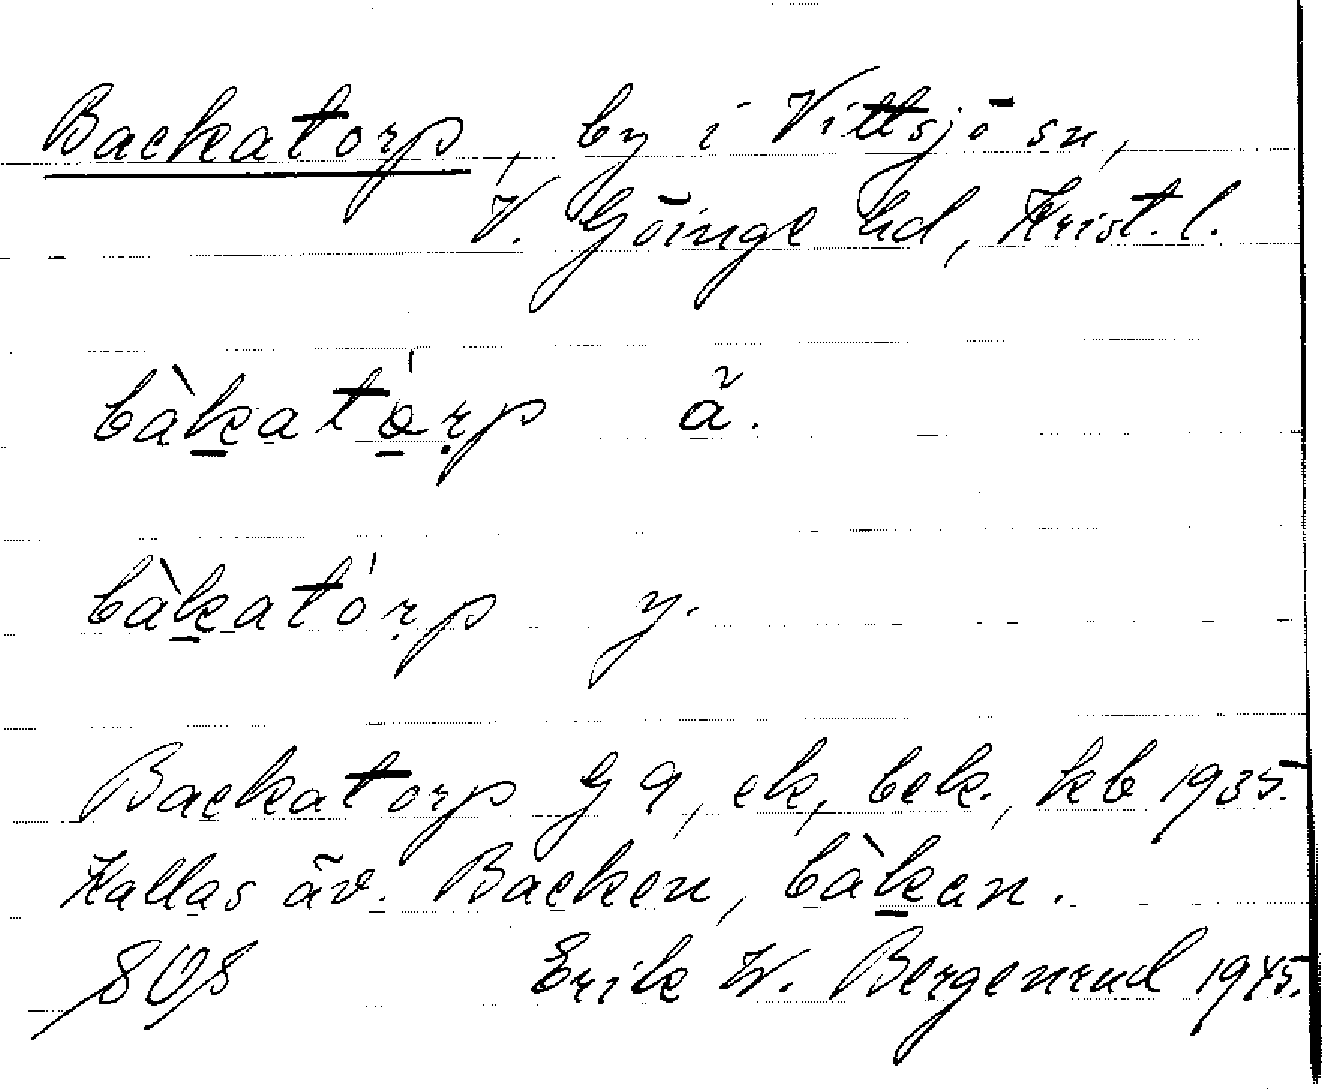 Backatorp, by i Vittsjö sn,
V. Göinge hd, Krist. l.
bàkató̱rp ä.
bàkatórp y.
Backatorp G 9, ek, bek., kb 1935.
Kallas äv. Backen, bàkan.
SOS Erik W. Bergenrud 1945.